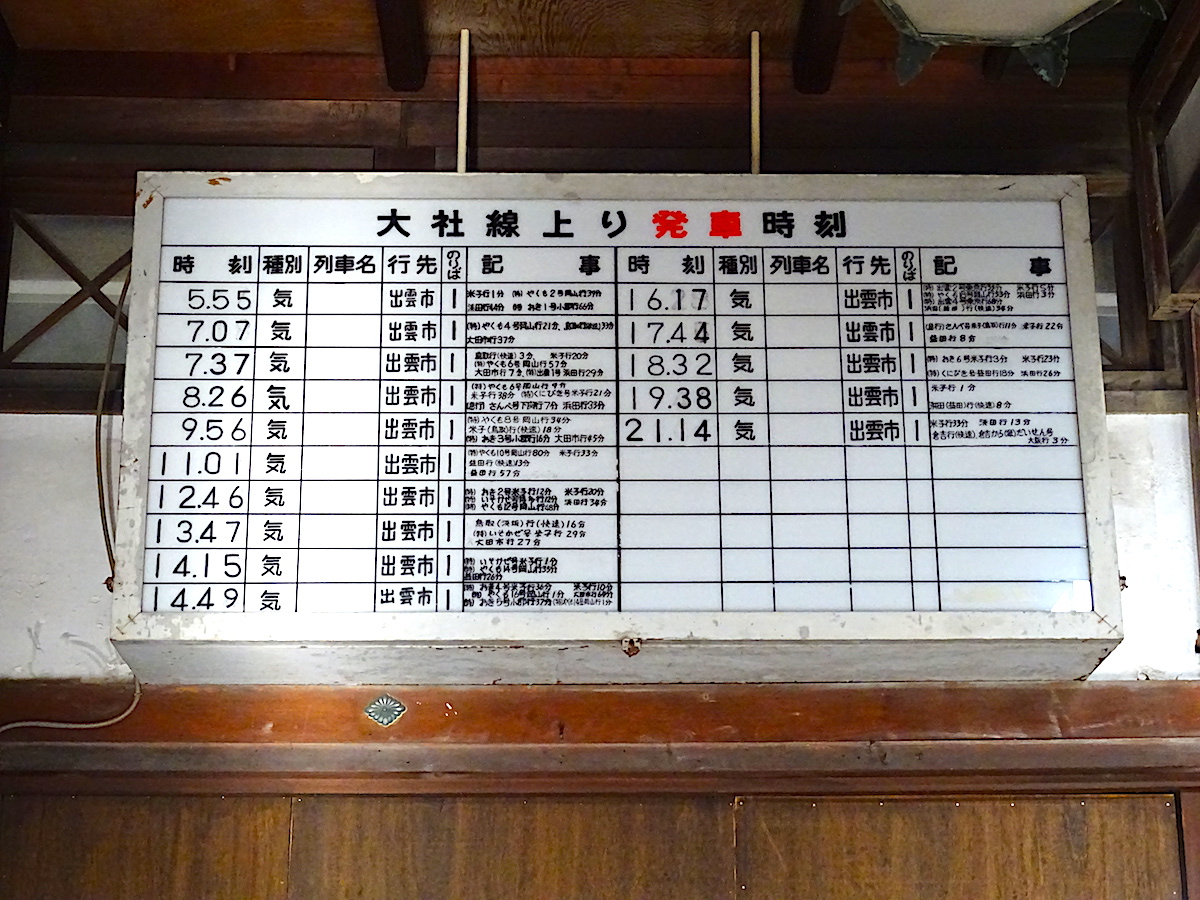 大社線上り発車時刻
時刻 種別 列車名 行先 のりば 記事 時刻 種別 列車名 行先 のりば 記事
5.55 気 出雲市 1 米子行1分 (特)やくも2号岡山行39分
16.17 気 出雲市 1
7.07 気 出雲市 1 (特)やくも4号岡山行21分
大田市行37分
17.44 気 出雲市 1 米子行22分
益田行8分
7.37 気 出雲市 1 鳥取行(快速)3分、 米子行20分
(特)やくも6号岡山行57分
大田市行7分、 浜田行29分
18.32 気 出雲市 1 (特)おき6号米子行3分 米子行23分
(特)くにびき号益田行18分 浜田行26分
8.26 気 出雲市 1 (特)やくも6号岡山行9分
米子行38分 (特)くにびき号米子行21分
(急行)さんべ号下関行7分 浜田行33分
19.38 気 出雲市 1 米子行1分
浜田(益田)行(快速)8分
9.56 気 出雲市 1 (特)やくも8号岡山行34分
米子(鳥取)行(快速)18分
(特)おき3号小郡行16分 大田市行45分
21.14 気 出雲市 1 米子行33分 浜田行13分
倉吉行(快速)、倉吉から(急)だいせん号
大阪行3分
11.01 気 出雲市 1 (特)やくも10号岡山行80分 米子行33分
益田行(快速)13分
益田行57分
12.46 気 出雲市 1 (特)おき2号米子行12分 米子行20分
(特)いそかぜ号米子行12分 浜田行34分
(特)やくも12号岡山行48分
13.47 気 出雲市 1 鳥取(浜坂)行(快速)16分
(特)いそかぜ号米子行29分
大田市行27分
14.15 気 出雲市 1 (特)いそかぜ号米子行1分
(特)やくも14号岡山行33分
益田行26分
14.49 気 出雲市 1 (特)おき4号米子行36分 米子行10分
(特)やくも16号岡山行1分
(特)おき5号小郡行37分